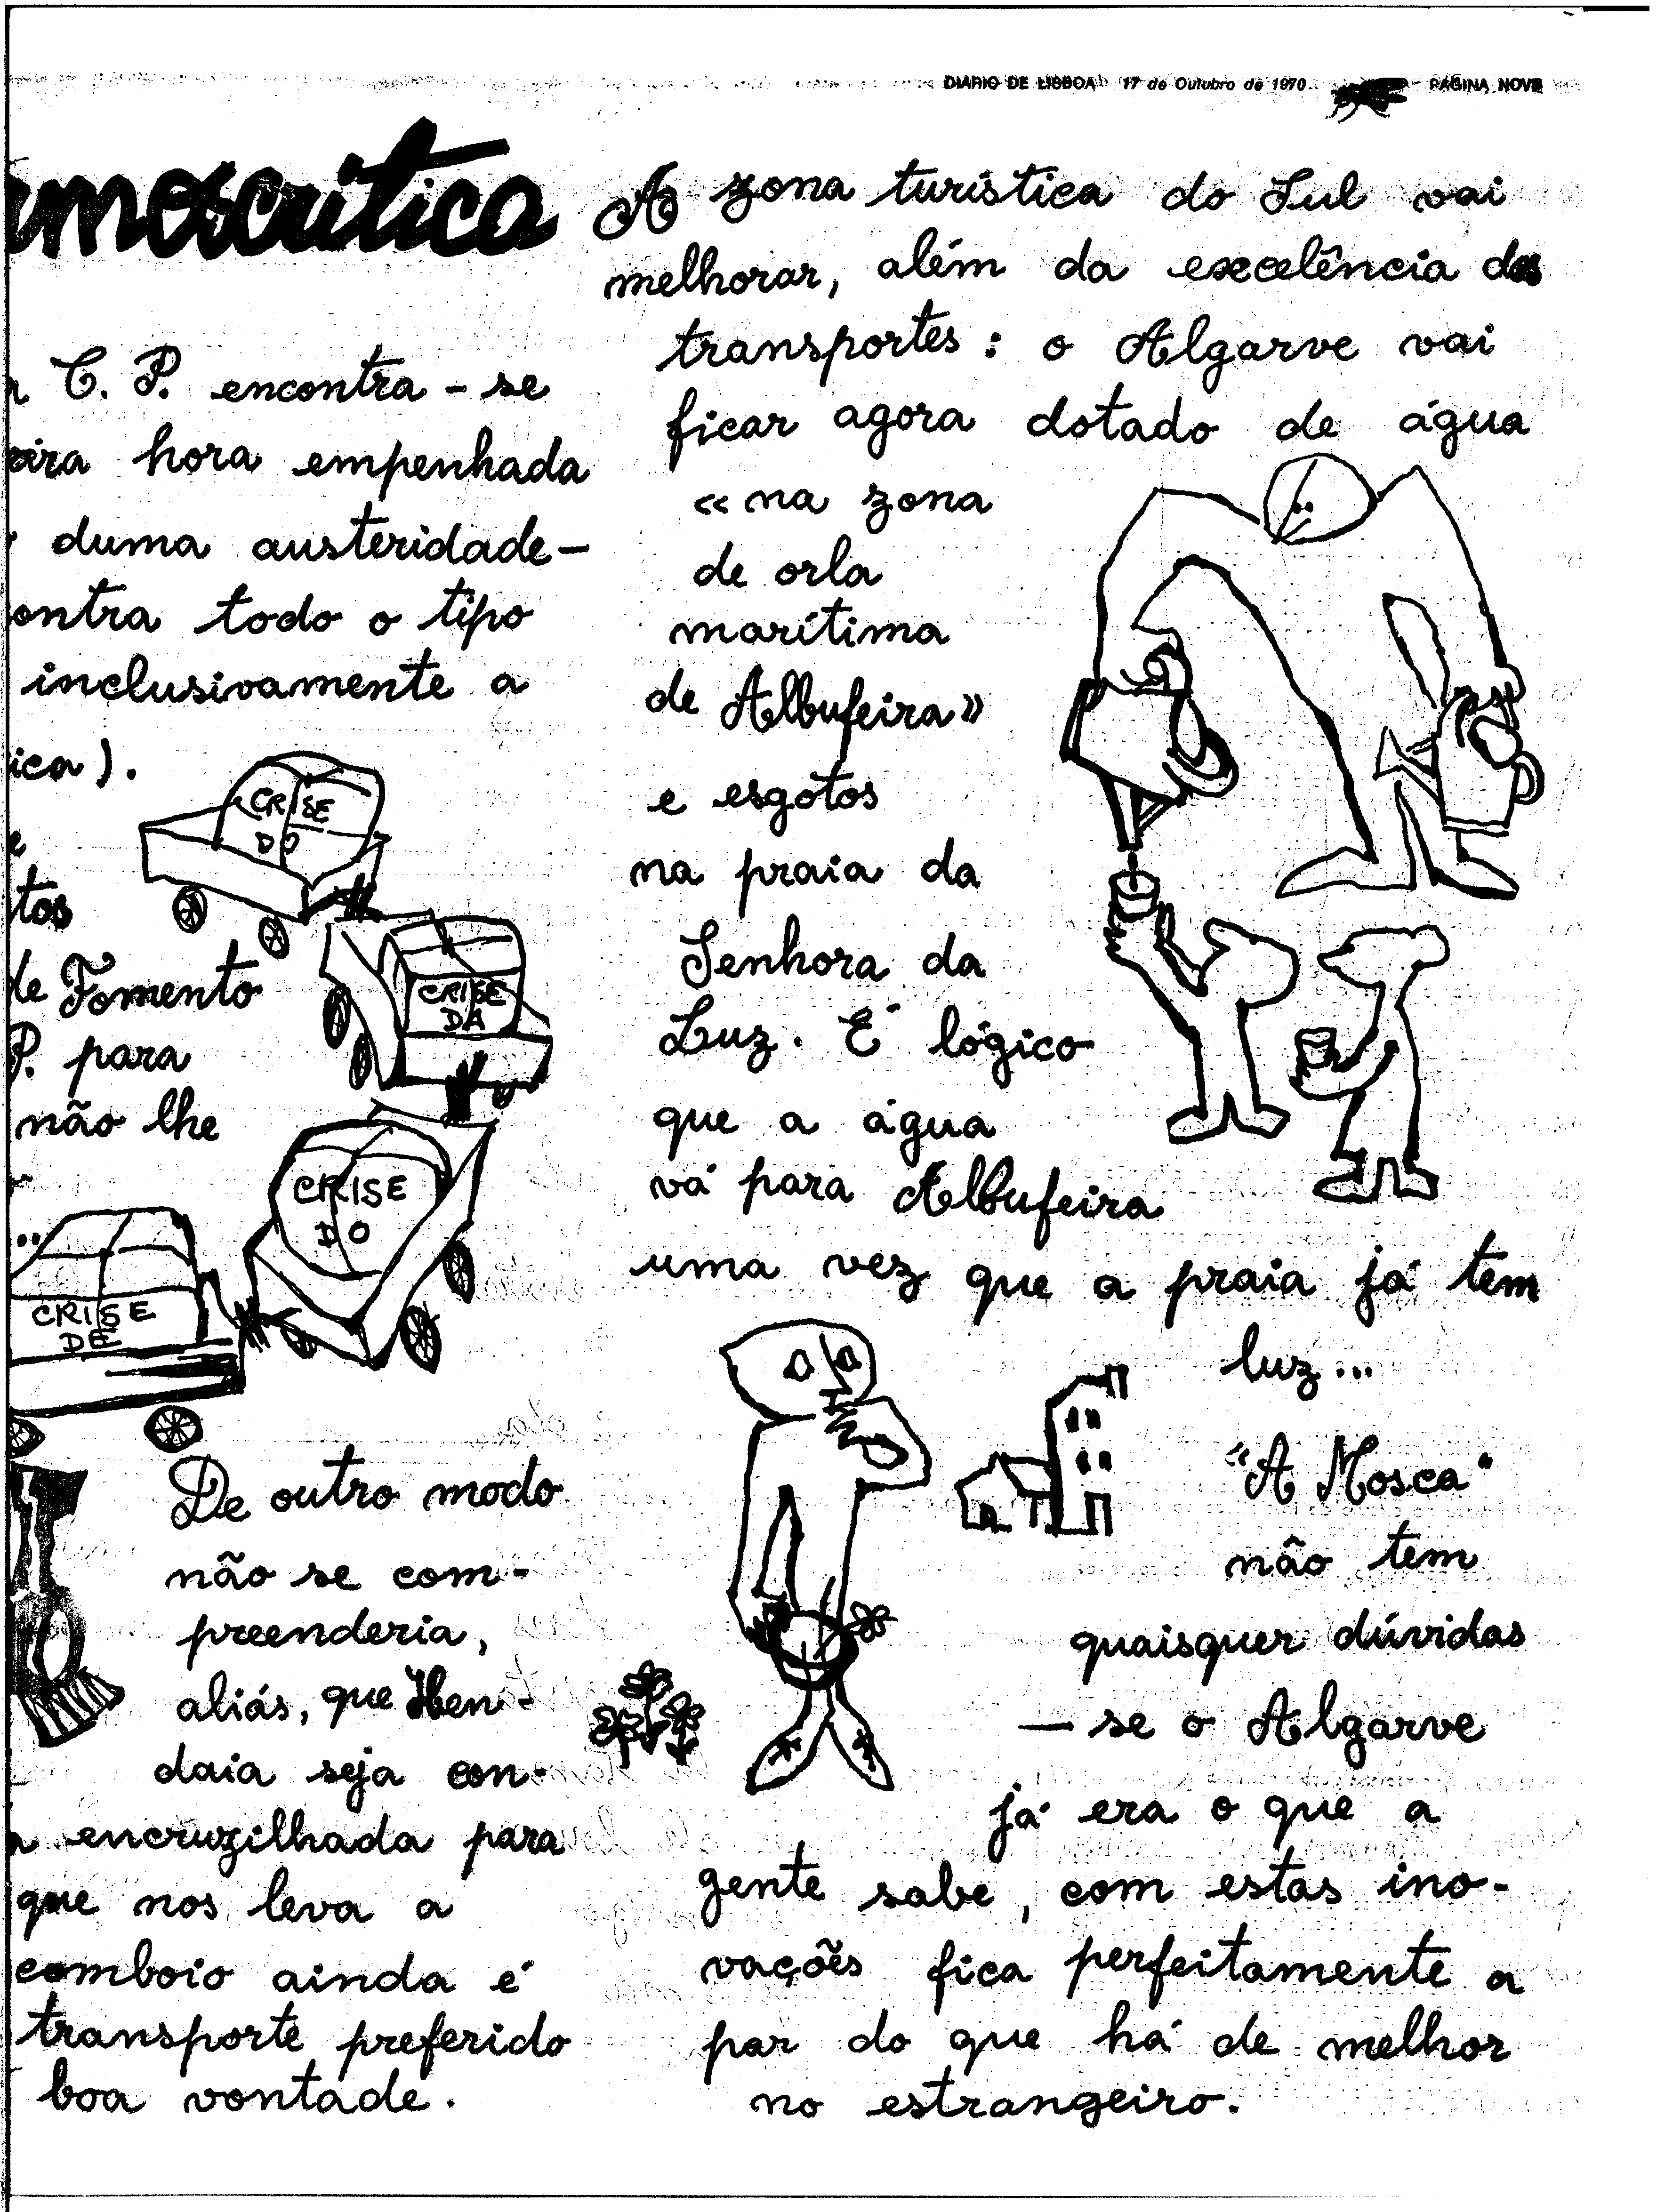 DIARIO DE LISBOA 17 de Outubro de 1970 PÁGINA NOVE
C. P. encontra-se
hora empenhada
duma austeridade—
todo o tipo
inclusivamente a
CRISE
DO
CRISE
DA
de Fomento
P. para
não lhe
CRISE
DO
CRISE
DE
De outro modo
não se com-
preenderia,
aliás, que Hen-
daia seja con-
encruzilhada para
que nos leva a
comboio ainda é
transporte preferido
boa vontade.
A zona turística do Sul vai
melhorar, além da excelência dos
transportes: o Algarve vai
ficar agora dotado de água
«na zona
de orla
marítima
de Albufeira»
e esgotos
na praia da
Senhora da
Luz. É lógico
que a água
vá para Albufeira
uma vez que a praia já tem
luz...
"A Mosca"
não tem
quaisquer dúvidas
— se o Algarve
já era o que a
gente sabe, com estas ino-
vações fica perfeitamente a
par do que há de melhor
no estrangeiro.